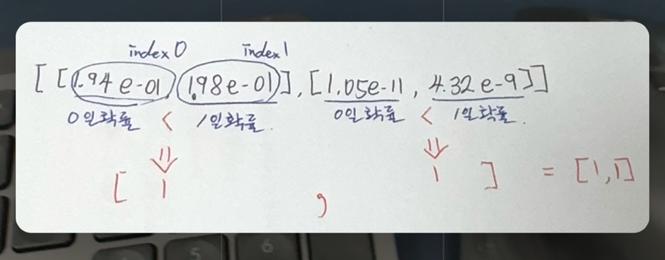 index0 index1
[[1.94e-01, 1.98e-01], [1.05e-11, 4.32e-9]]
0일확률 < 1일확률 0일확률 < 1일확률.
⇓ ⇓
[ 1 , 1 ] = [1,1]